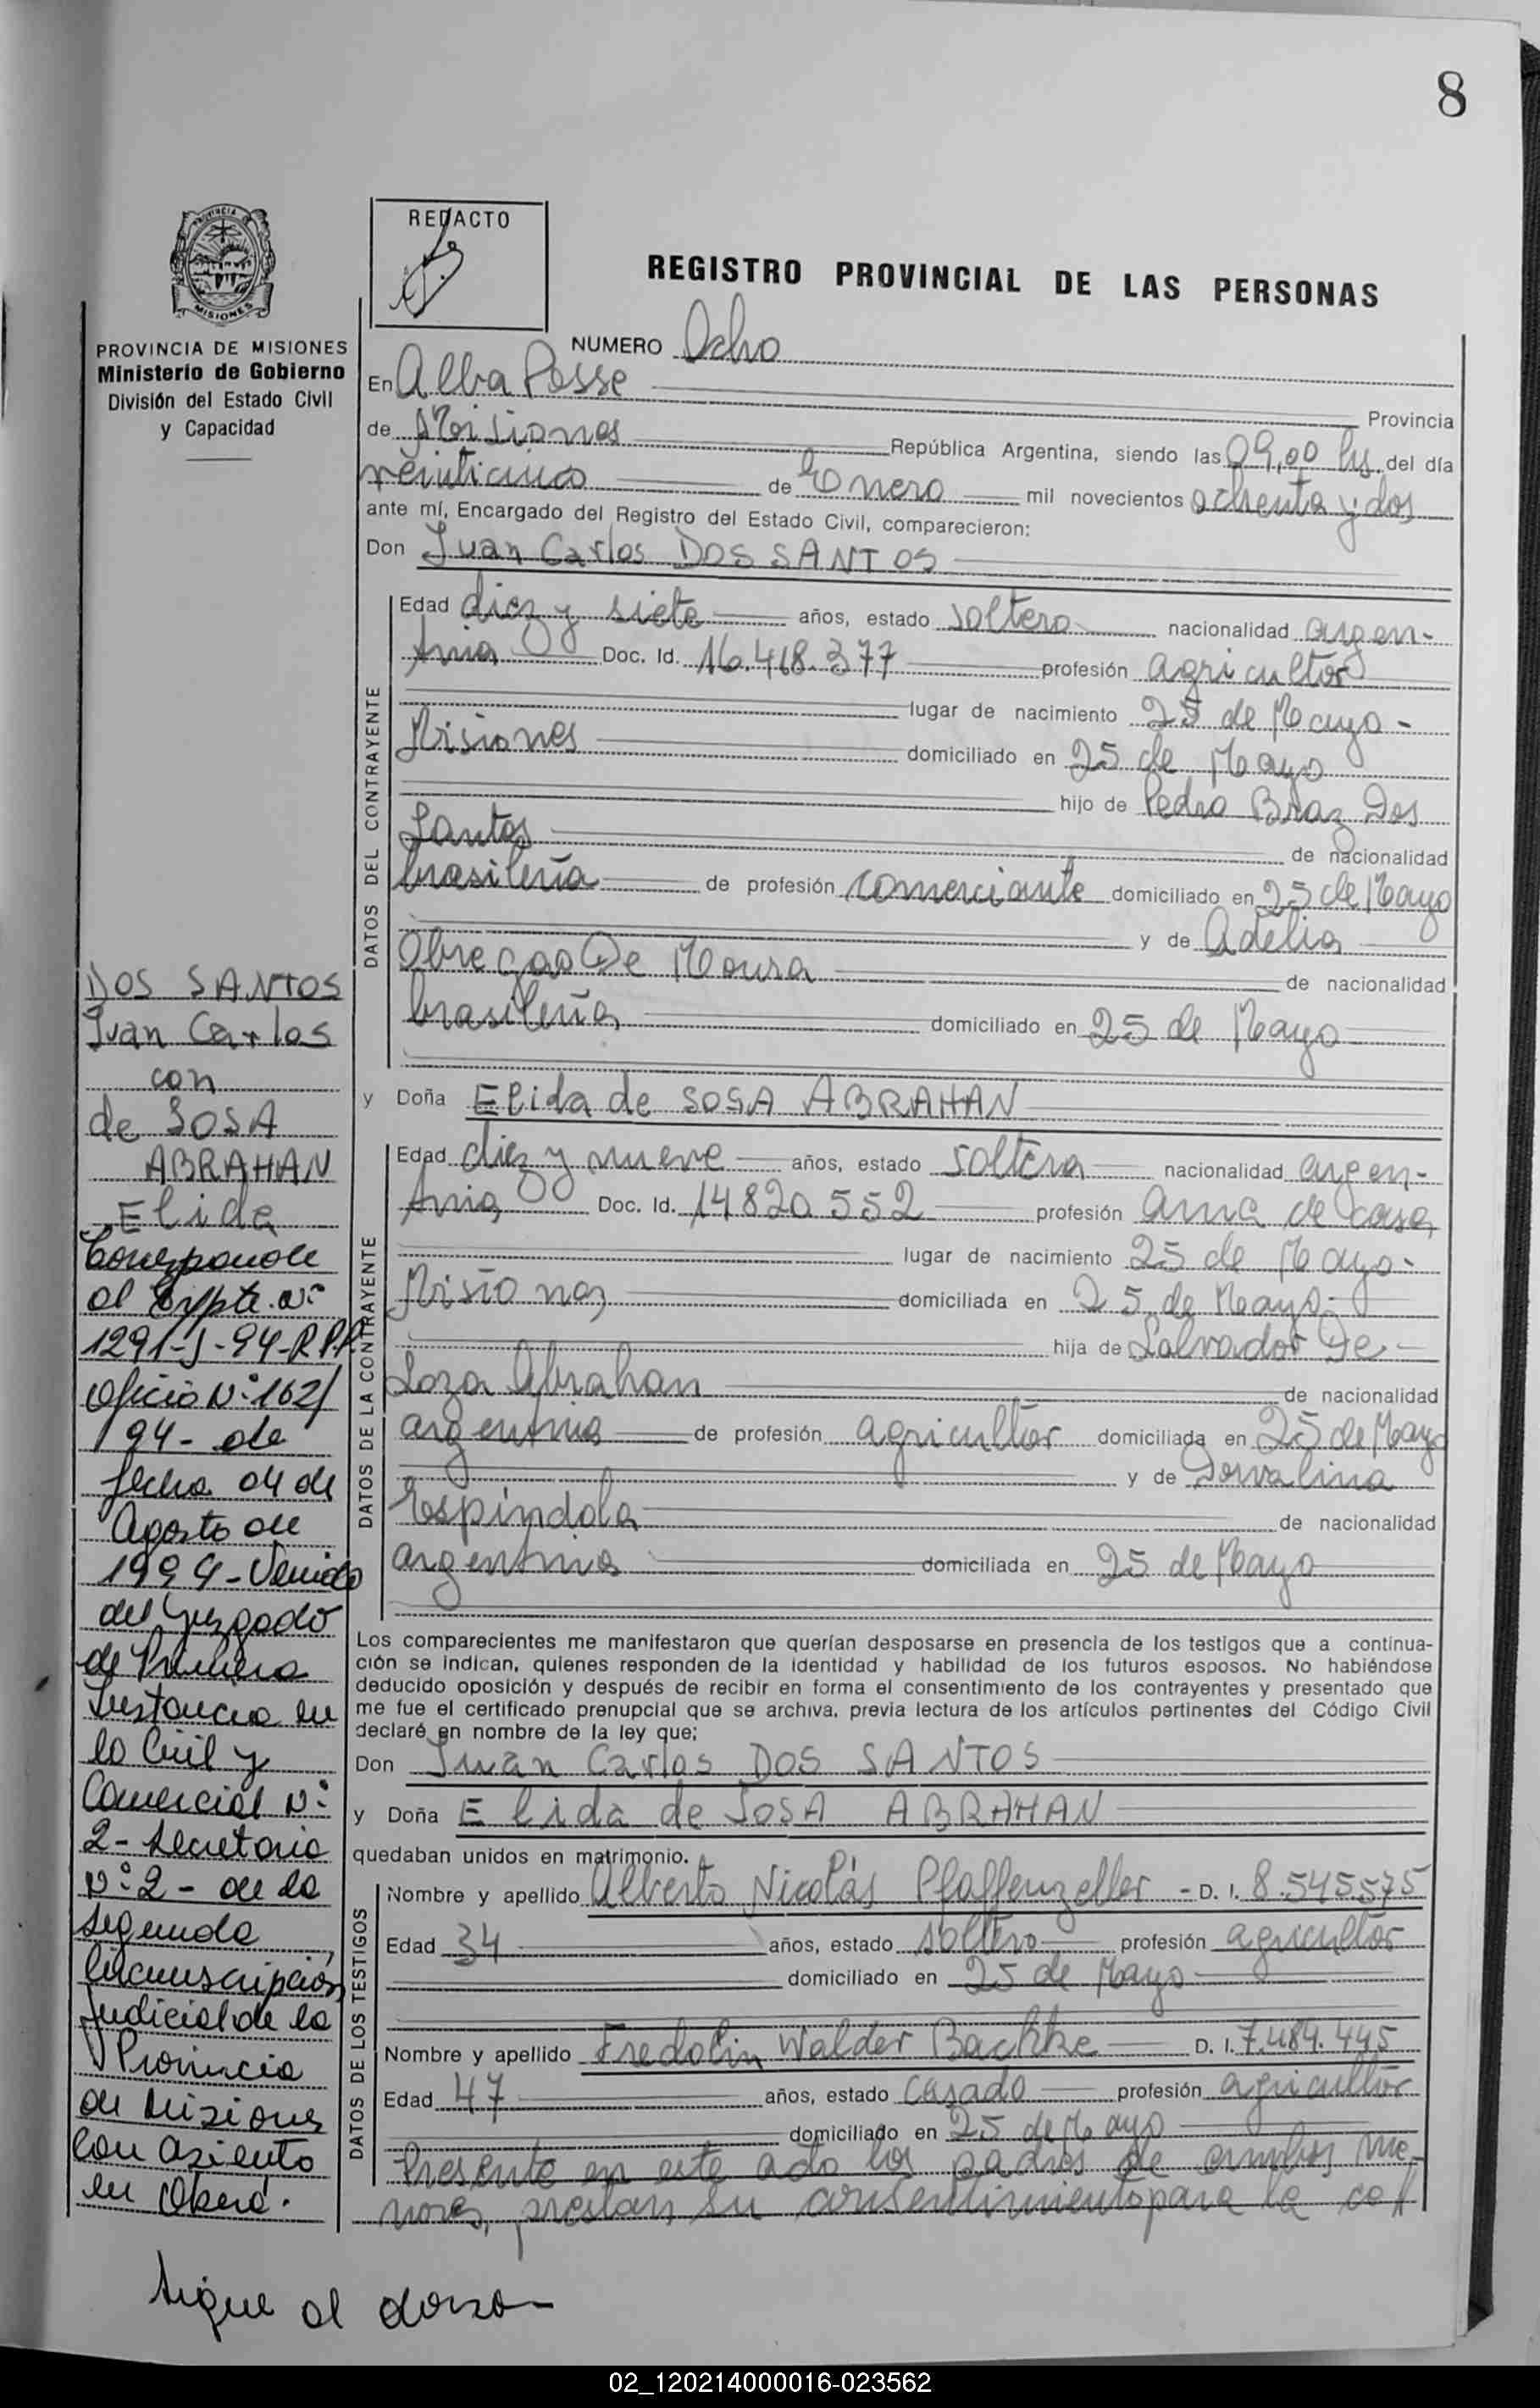 8
PROVINCIA DE MISIONES
PROVINCIA DE MISIONES
Ministerio de Gobierno
División del Estado Civil
y Capacidad
REDACTO
REGISTRO PROVINCIAL DE LAS PERSONAS
NUMERO Ocho
En Alba Posse Provincia
de Misiones República Argentina, siendo las 09,00 hs. del día
veinticinco de Enero mil novecientos ochenta y dos
ante mí, Encargado del Registro del Estado Civil, comparecieron:
Don Juan Carlos DOS SANTOS
DATOS DEL CONTRAYENTE
Edad diez y siete años, estado soltero nacionalidad argen-
tina Doc. Id. 16.418.377 profesión agricultor
lugar de nacimiento 25 de Mayo -
Misiones domiciliado en 25 de Mayo
hijo de Pedro Braz Dos
Santos de nacionalidad
brasileña de profesión comerciante domiciliado en 25 de Mayo
y de Adelia
Obregao De Moura de nacionalidad
brasileña domiciliado en 25 de Mayo
y Doña Elida de SOSA ABRAHAN
DATOS DE LA CONTRAYENTE
Edad diez y nueve años, estado soltera nacionalidad argen-
tina Doc. Id. 14820552 profesión ama de casa
lugar de nacimiento 25 de Mayo -
Misiones domiciliada en 25 de Mayo -
hija de Salvador De -
Soza Abrahan de nacionalidad
argentina de profesión agricultor domiciliada en 25 de Mayo
y de Dorvalina
Espíndola de nacionalidad
argentina domiciliada en 25 de Mayo
Los comparecientes me manifestaron que querían desposarse en presencia de los testigos que a continua-
ción se indican, quienes responden de la identidad y habilidad de los futuros esposos. No habiéndose
deducido oposición y después de recibir en forma el consentimiento de los contrayentes y presentado que
me fue el certificado prenupcial que se archiva, previa lectura de los artículos pertinentes del Código Civil
declaré en nombre de la ley que:
Don Juan Carlos DOS SANTOS
y Doña Elida de SOSA ABRAHAN
quedaban unidos en matrimonio.
DATOS DE LOS TESTIGOS
Nombre y apellido Alberto Nicolás Pfaffenzeller - D. I. 8.545575
Edad 34 años, estado soltero profesión agricultor
domiciliado en 25 de Mayo
Nombre y apellido Fredolin Walder Bachke D. I. 7.484.445
Edad 47 años, estado casado profesión agricultor
domiciliado en 25 de Mayo
Presente en este acto los padres de ambos me-
nores, prestan su consentimiento para la
DOS SANTOS
Juan Carlos
con
de SOSA
ABRAHAN
Elida
Corresponde
al Expte. Nº
1291-J-94-R.P.P.
Oficio Nº 162/
94- de
fecha 04 de
Agosto de
1994 - Venido
del Juzgado
de Primera
Instancia en
lo Civil y
Comercial Nº
2 - Secretaria
Nº 2 - de la
Segunda
Circunscripción
Judicial de la
Provincia
de Misiones
con asiento
en Oberá.
Sigue al dorso -
02_120214000016-023562